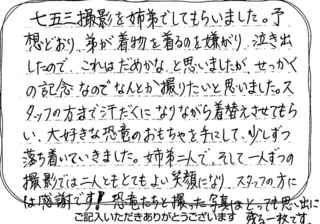 七五三撮影を姉弟でしてもらいました。予
想どおり、弟が着物を着るのを嫌がり、泣き出
したので、これはだめかな、と思いましたが、せっかく
の記念なのでなんとか撮りたいと思いました。ス
タッフの方まで汗だくになりながら着替えさせてもら
い、大好きな恐竜のおもちゃを手にして、少しずつ
落ち着いていきました。姉弟二人で、そして一人ずつの
撮影では二人ともとてもよい笑顔になり、スタッフの方に
は感謝です!恐竜たちと撮った写真はとっても思い出に
残る一枚です。
ご記入いただきありがとうございます